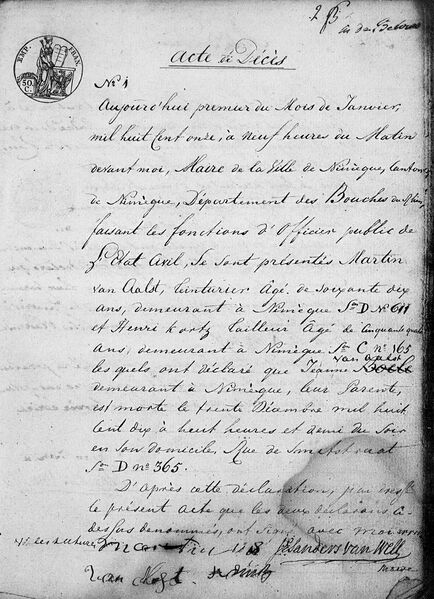 2
EMP. FRAN.
50
C.
Acte de Décès
N.º 1
Aujourd'hui premier du Mois de Janvier,
mil huit Cent onze, à neuf heures du Matin
devant moi, Maire de la Ville de Nimègue, Canton
de Nimègue, Département des Bouches du Rhin,
faisant les fonctions d'Officier public de
l'Etat Civil, Se sont présentés Martin
van Aalst, Teinturier Agé de Soixante dix
ans, demeurant à Nimègue Sn D Nº 611
et Henri Kortz Tailleur Agé de Cinquante quatre
ans, demeurant à Nimègue Sn C nº 165
van aalst
les quels ont déclaré que Jeanne
demeurant à Nimègue, leur Parente,
est morte le trente Décembre mil huit
Cent dix à huit heures et demi du Soir
en son domicile, Rue de Smetstraat
Sn D nº 365.
D'après cette déclaration, j'ai
le présent Acte que les deux déclarans Ci
dessus dénommés, ont signé avec moi
Martin Sanders van Well
van Aalst Maire